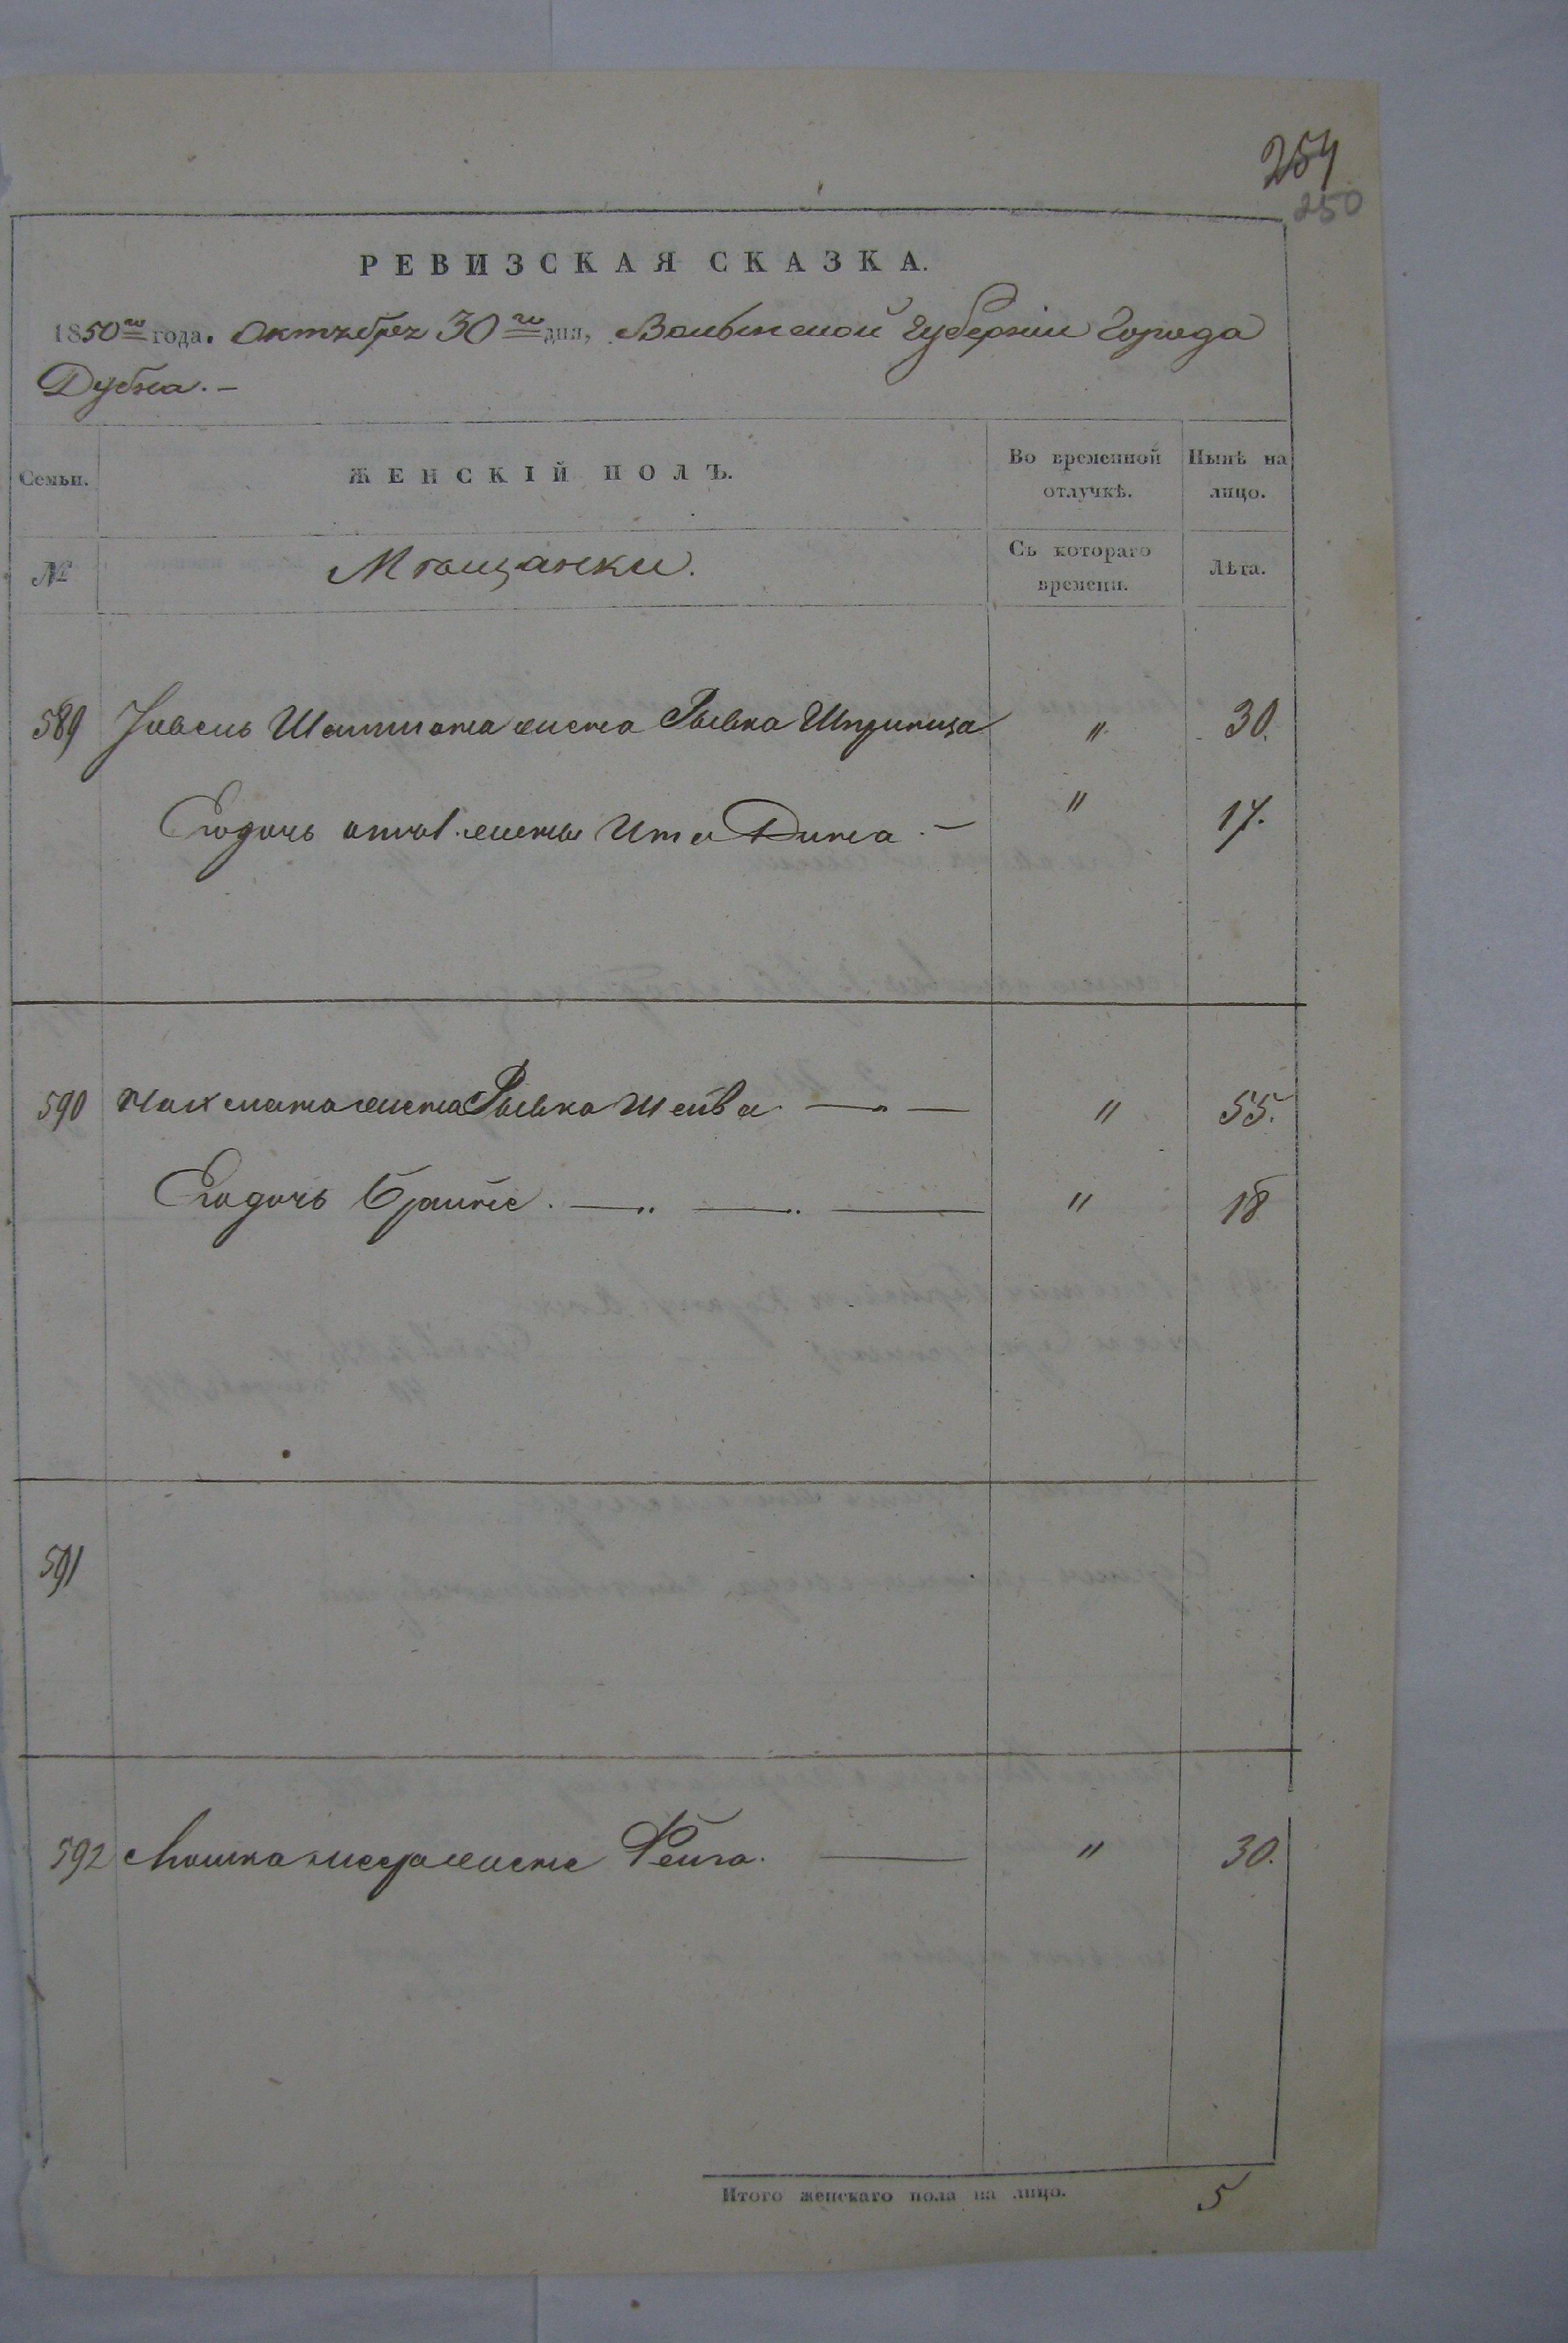 254
250
РЕВИЗСКАЯ СКАЗКА.
1850го года. Октября 30го дня, Волынской Губерніи Города
Дубна. —
Семьи. ЖЕНСКІЙ ПОЛЪ. Во временной отлучкѣ. Нынѣ на лицо.
№ Мѣщанки. Съ котораго времени. Лѣта.
589 жена Рывка Шпринца " 30.
Его дочь жены Ита Дина. — " 17.
590 жена Рывка Шейва — — " 55.
Его дочь Брайне. — — — " 18
591
592 жена Фейга. — " 30.
Итого женскаго пола на лицо. 5